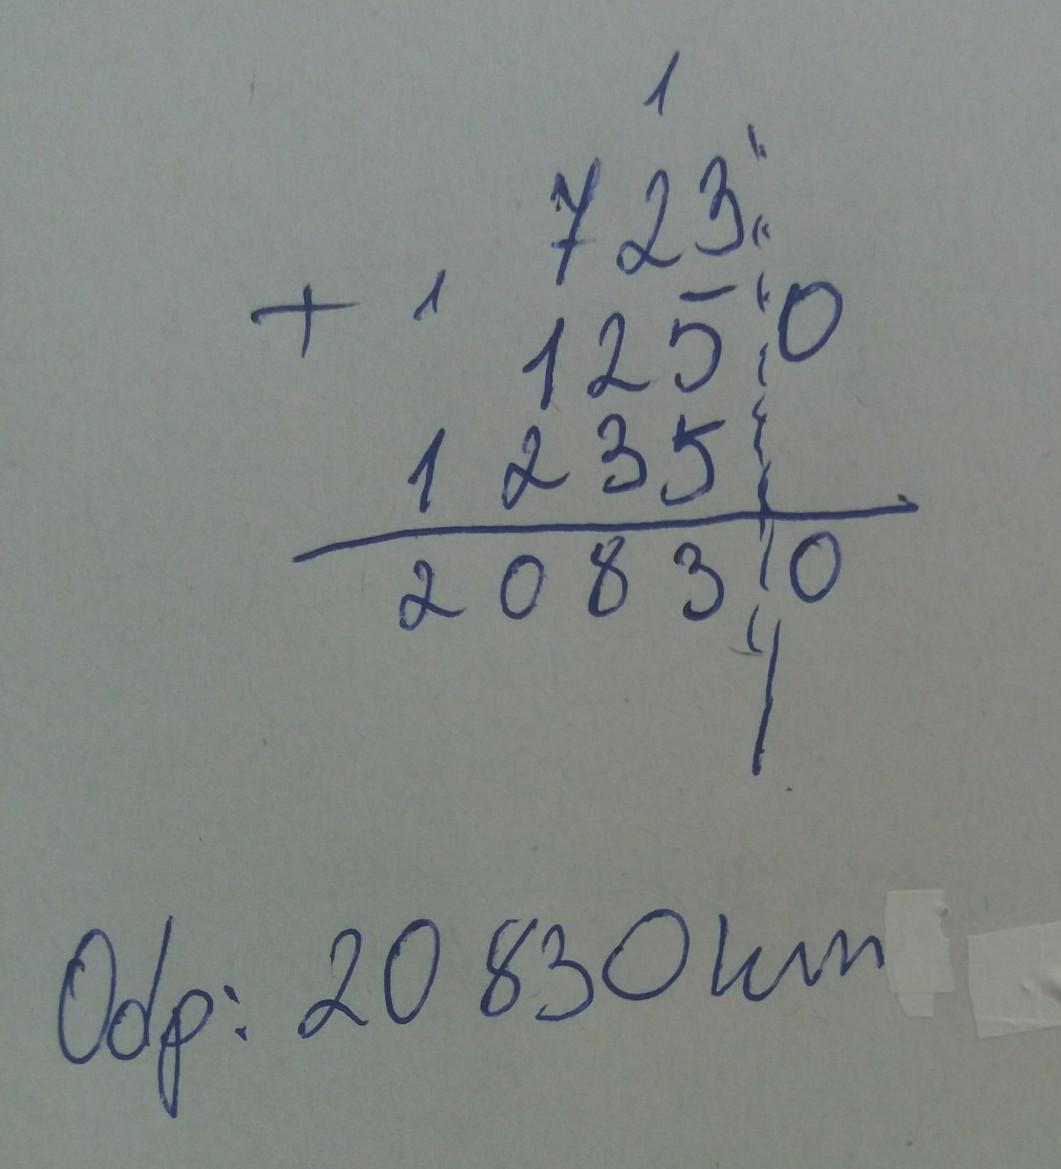 1
723
+ 1
1250
1235
20830
Odp: 20 830 km